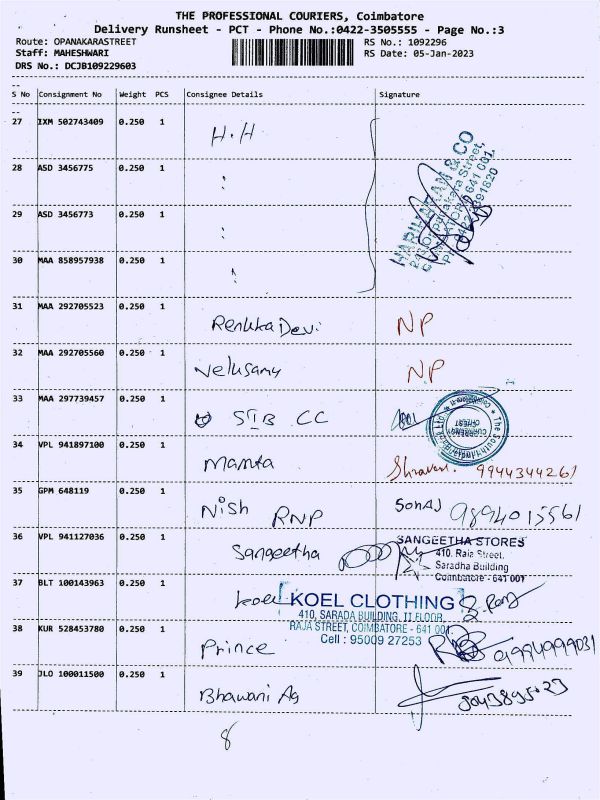 THE PROFESSIONAL COURIERS, Coimbatore
Delivery Runsheet - PCT - Phone No.:0422-3505555 - Page No.:3
Route: OPANAKARASTREET RS No.: 1092296
Staff: MAHESHWARI RS Date: 05-Jan-2023
DRS No.: DCJB109229603
S No Consignment No Weight PCS Consignee Details Signature
27 IXM 502743409 0.250 1 H.H
28 ASD 3456775 0.250 1 :
29 ASD 3456773 0.250 1 :
30 MAA 858957938 0.250 1 :
HARI & CO
COIMBATORE 641 001
31 MAA 292705523 0.250 1 Renuka Devi NP
32 MAA 292705560 0.250 1 Velusamy NP
33 MAA 297739457 0.250 1 SIB CC
CURRENCY CHEST
34 VPL 941897100 0.250 1 Mamta Shravan. 9944344261
35 GPM 648119 0.250 1 Nish RNP SONAJ 9894015561
36 VPL 941127036 0.250 1 Sangeetha
SANGEETHA STORES
410, Raja Street,
Saradha Building
Coimbatore - 641 001
37 BLT 100143963 0.250 1 Koel
KOEL CLOTHING
410, SARADA BUILDING, II FLOOR,
RAJA STREET, COIMBATORE - 641 001.
Cell : 95009 27253
38 KUR 528453780 0.250 1 Prince
39 JLO 100011500 0.250 1 Bhawani Ag
8